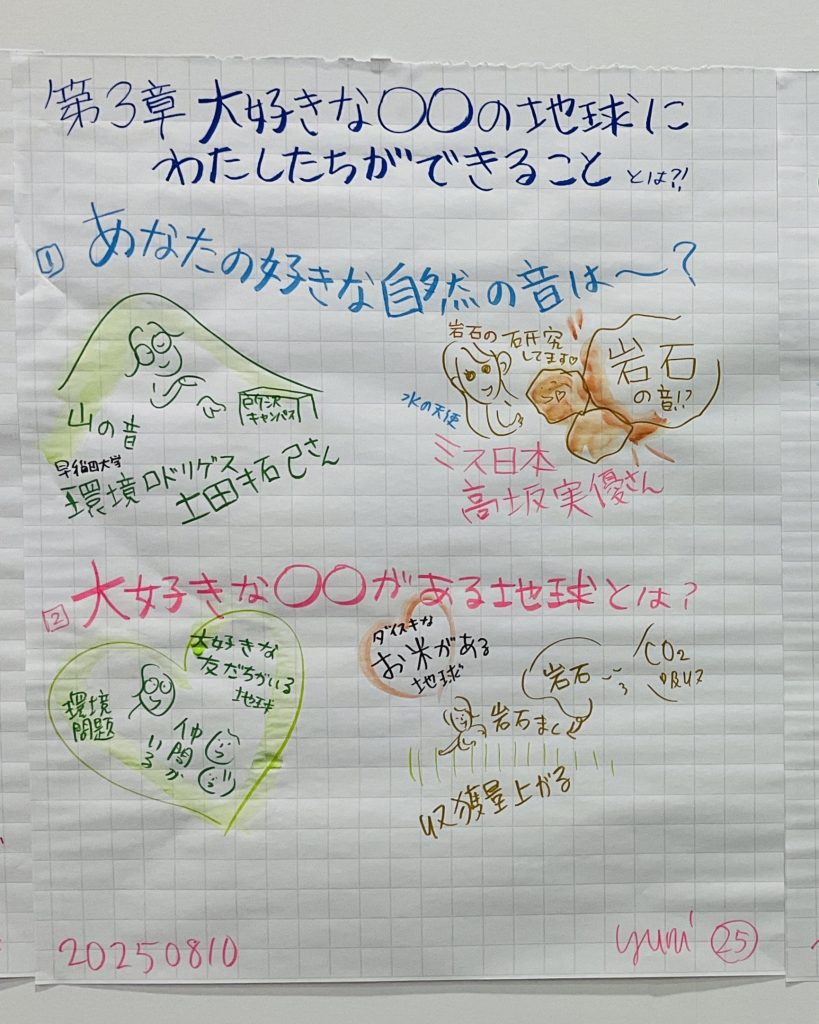 第3章 大好きな〇〇の地球に
わたしたちができること とは?!
1 あなたの好きな自然の音は〜?
山の音
所沢
キャンパス
早稲田大学
環境ロドリゲス
土田 さん
岩石の研究
してます♡
岩石
の音!?
水の天使
ミス日本
高坂実優さん
2 大好きな〇〇がある地球とは?
大好きな
友だちがいる
地球
環境
問題
仲間が
いる
ダイスキな
お米がある
地球
岩石まく
岩石
CO2
吸収
収穫量上がる
20250810
yuni 25